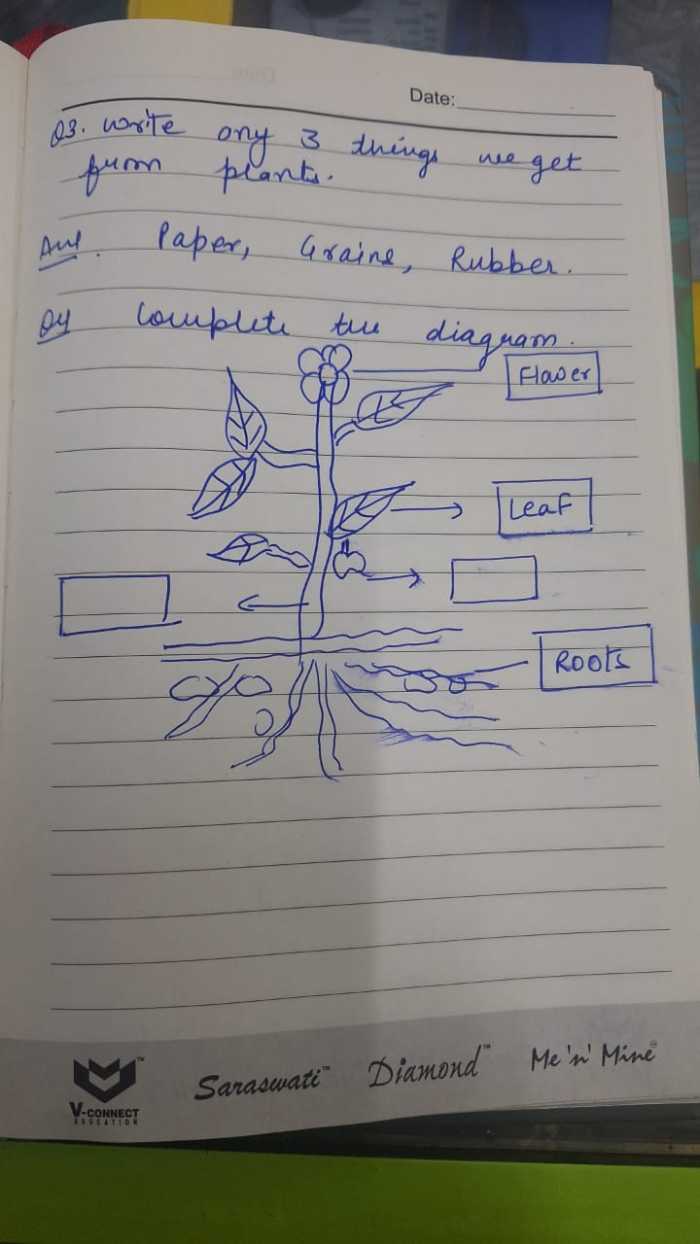 Date:
Q3. Write any 3 things we get
from plants.
Ans. Paper, Grains, Rubber.
Q4 Complete the diagram.
Flower
Leaf
Roots
V-CONNECT
EDUCATION
Saraswati™ Diamond™ Me 'n' Mine®